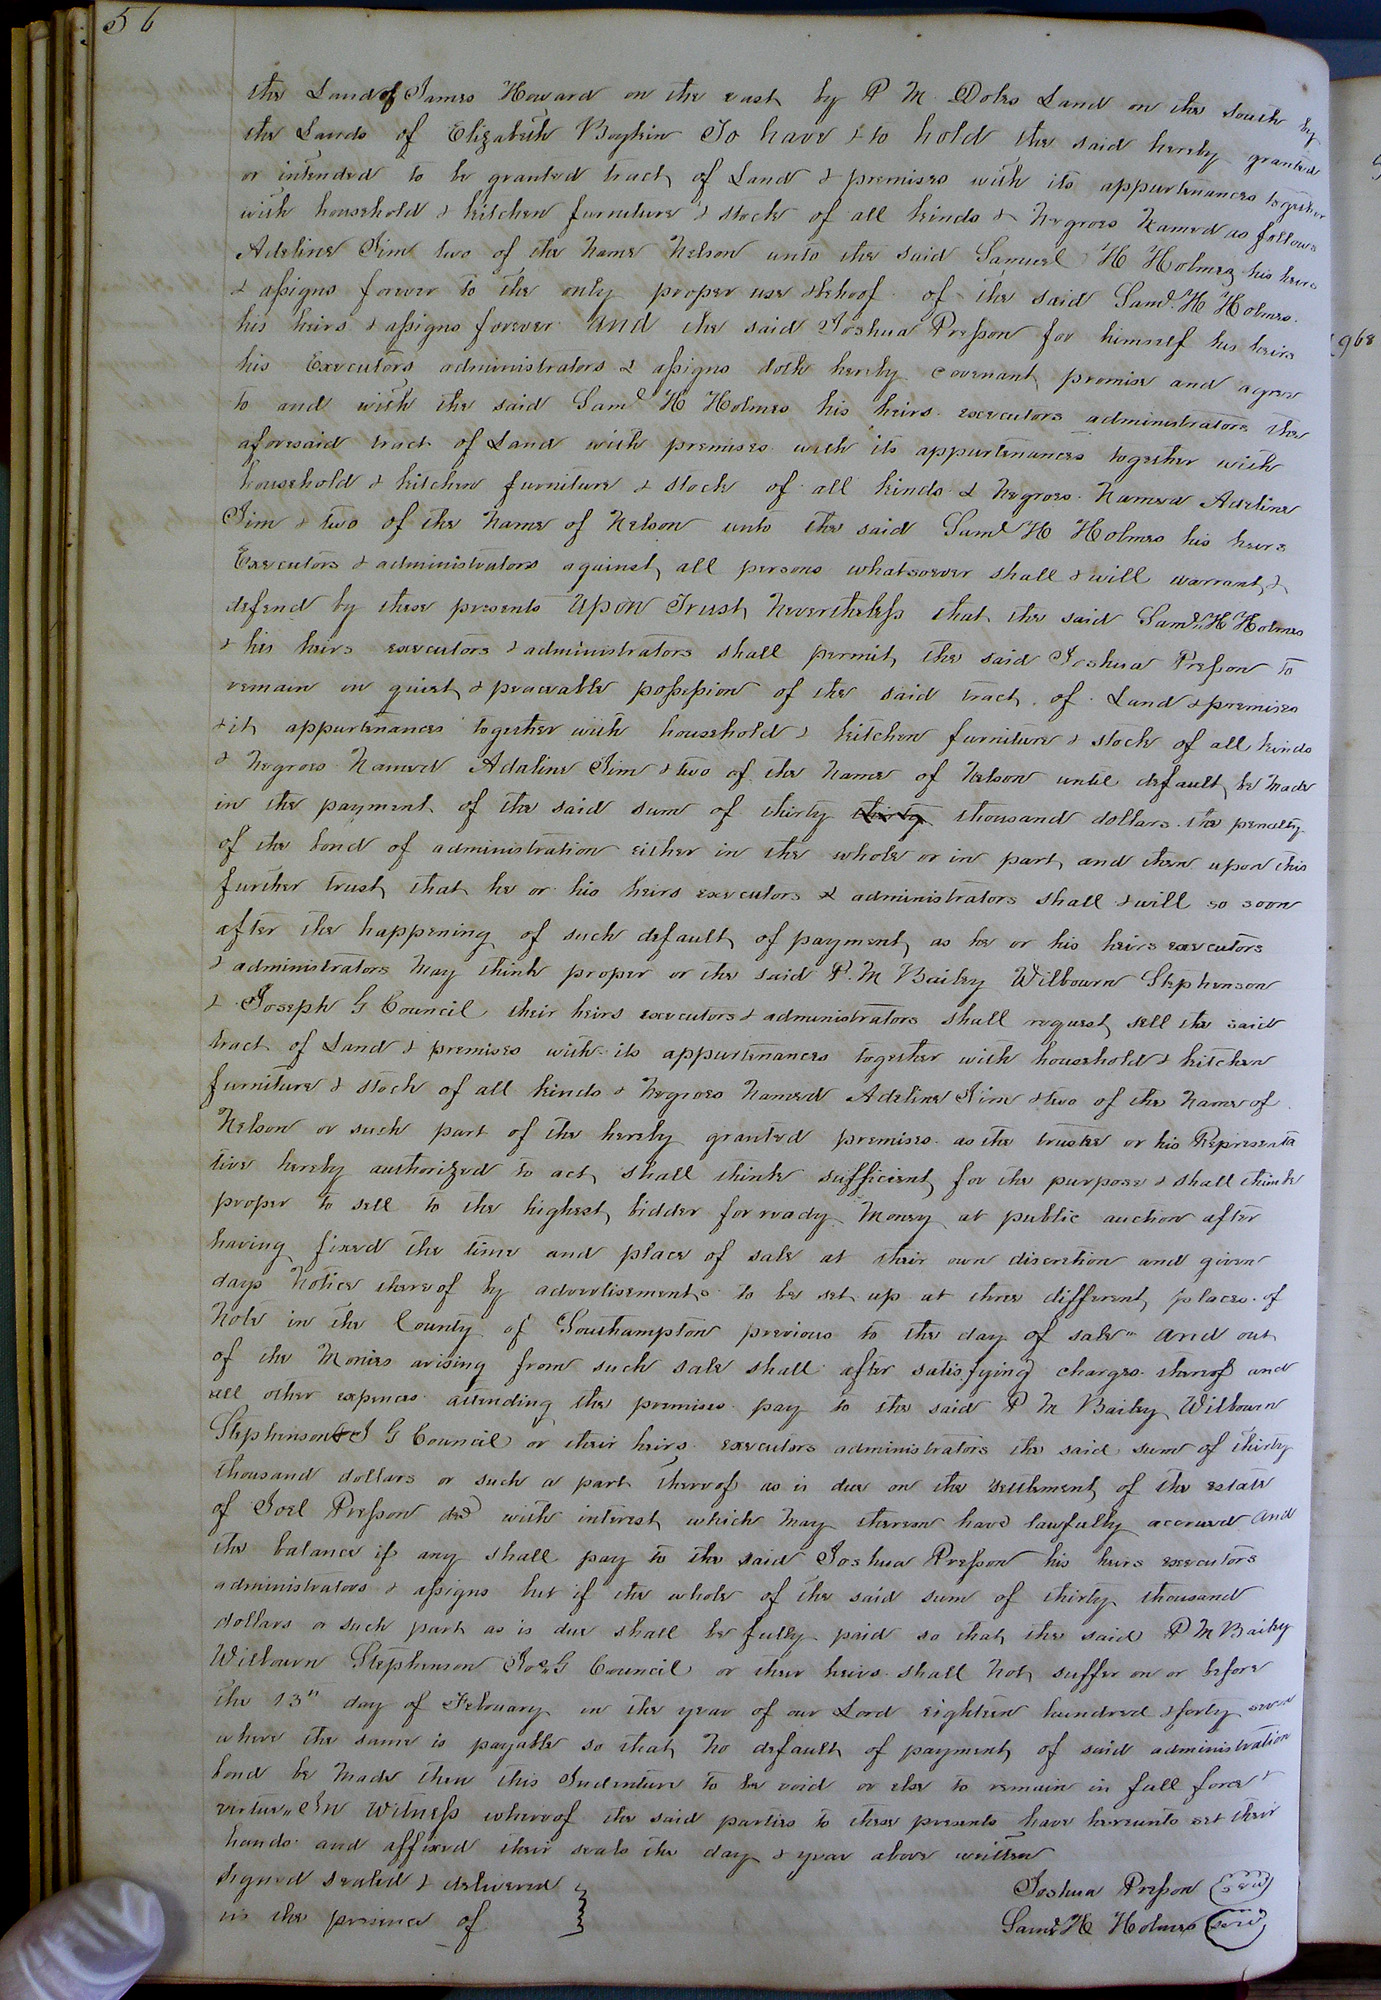 56
the Land of James Howard on the east by P M. Doles Land on the South by
the Lands of Elizabeth Boykin To have & to hold the said hereby granted
or intended to be granted tract of Land & premises with its appurtenances together
with household & kitchen furniture & stock of all kinds & Negroes Named as follows
Adeline Jim two of the Name Nelson unto the said Samuel H Holmes his heirs
& assigns forever to the only proper use & behoof of the said Saml. H Holmes.
his heirs & assigns forever. And the said Joshua Presson for himself his heirs
his Executors administrators & assigns doth hereby covenant promise and agree
to and with the said Saml H Holmes his heirs executors administrators the
aforesaid tract of Land with premises with its appurtenances together with
household & kitchen furniture & stock of all kinds & Negroes Named Adeline
Jim & two of the Name of Nelson unto the said Saml H Holmes his heirs
Executors & administrators against all persons whatsoever shall & will warrant &
defend by these presents Upon Trust Nevertheless that the said Saml. H Holmes
& his heirs executors & administrators shall permit the said Joshua Presson to
remain in quiet & peaceable possession of the said tract of Land & premises
& it appurtenances together with household & kitchen furniture & stock of all kinds
& Negroes Named Adaline Jim & two of the Name of Nelson until default be Made
in the payment of the said sum of thirty thirty thousand dollars the penalty
of the bond of administration either in the whole or in part and then upon this
further trust that he or his heirs executors & administrators shall & will so soon
after the happening of such default of payment as he or his heirs executors
& administrators May think proper or the said P. M Bailey Wilbourn Stephenson
& Joseph G Council their heirs executors & administrators shall request sell the said
tract of Land & premises with its appurtenances together with household & kitchen
furniture & stock of all kinds & Negroes Named Adeline Jim & two of the Name of
Nelson or such part of the hereby granted premises as the trustee or his Representa
tive hereby authorized to act shall think sufficient for the purpose & shall think
proper to sell to the highest bidder for ready Money at public auction after
having fixed the time and place of sale at their own discretion and given
days Notice thereof by advertisements to be set up at three different places of
Note in the County of Southampton previous to the day of sale" and out
of the Monies arising from such sale shall after satisfying charges thereof and
all other expences attending the premises pay to the said P M Bailey Wilbourn
Stephenson & J G Council or their heirs executors administrators the said sum of thirty
thousand dollars or such a part thereof as is due on the settlement of the estate
of Joel Presson decd with interest which May thereon have lawfully accrued And
the balance if any shall pay to the said Joshua Presson his heirs executors
administrators & assigns but if the whole of the said sum of thirty thousand
dollars or such part as is due shall be fully paid so that the said P M Bailey
Wilbourn Stephenson Jos G Council or their heirs shall Not suffer on or before
the 13th day of February in the year of our Lord eighteen hundred & forty seven
where the same is payable so that No default of payment of said administration
bond be Made then this Indenture to be void or else to remain in full force &
virtue" In Witness whereof the said parties to these presents have hereunto set their
hands and affixed their seals the day & year above written
Signed sealed & delivered
in the presence of
Joshua Presson seal
Saml H Holmes seal
968